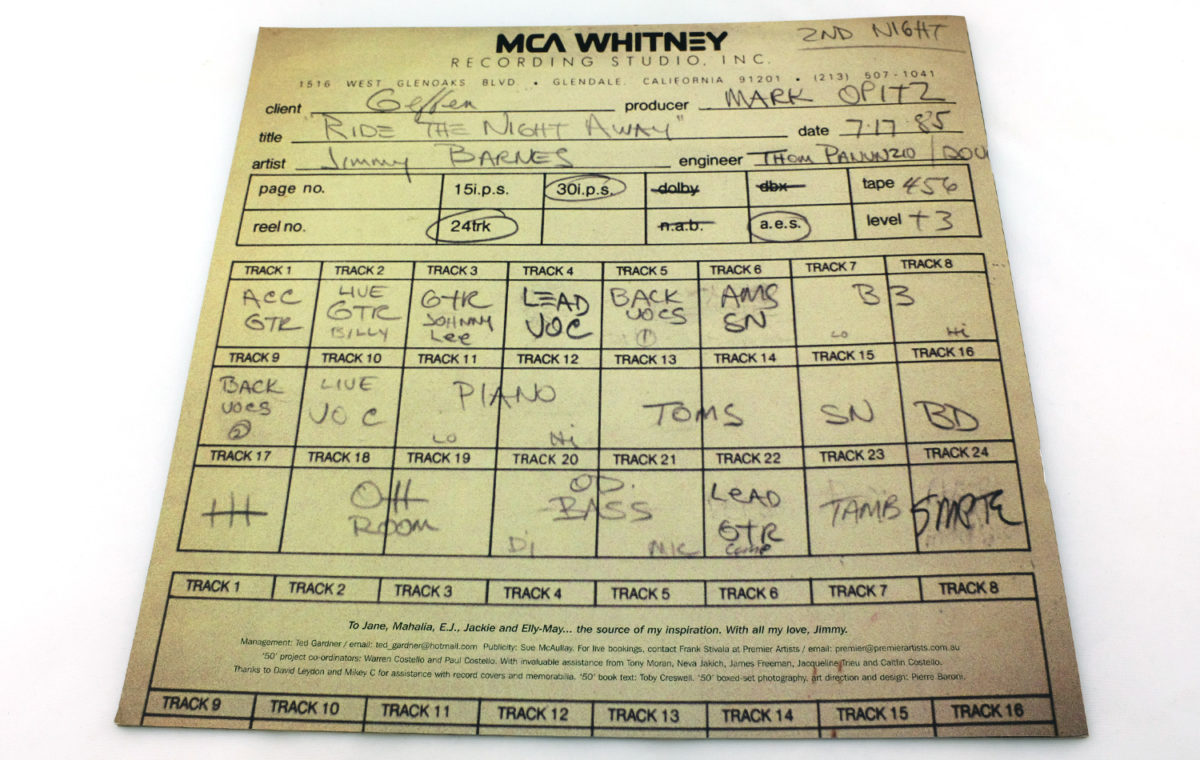 2ND NIGHT
MCA WHITNEY
RECORDING STUDIO, INC.
1516 WEST GLENOAKS BLVD. • GLENDALE, CALIFORNIA 91201 • (213) 507-1041
client Geffen producer MARK OPITZ
title "RIDE THE NIGHT AWAY" date 7·17 85
artist Jimmy BARNES engineer THOM PANUNZIO /
page no. 15i.p.s. 30i.p.s. dolby dbx tape 456
reel no. 24trk n.a.b. a.e.s. level +3
TRACK 1 TRACK 2 TRACK 3 TRACK 4 TRACK 5 TRACK 6 TRACK 7 TRACK 8
ACC GTR LIVE GTR BILLY GTR JOHNNY Lee LEAD VOC BACK VOCS ① AMS SN B3 LO Hi
TRACK 9 TRACK 10 TRACK 11 TRACK 12 TRACK 13 TRACK 14 TRACK 15 TRACK 16
BACK VOCS ② LIVE VOC PIANO LO Hi TOMS SN BD
TRACK 17 TRACK 18 TRACK 19 TRACK 20 TRACK 21 TRACK 22 TRACK 23 TRACK 24
HH OH ROOM O.D. BASS Di MIC LEAD GTR comp TAMB SMPTE
TRACK 1 TRACK 2 TRACK 3 TRACK 4 TRACK 5 TRACK 6 TRACK 7 TRACK 8
To Jane, Mahalia, E.J., Jackie and Elly-May... the source of my inspiration. With all my love, Jimmy.
Management: Ted Gardner / email: ted_gardner@hotmail.com Publicity: Sue McAullay. For live bookings, contact Frank Stivala at Premier Artists / email: premier@premierartists.com.au
'50' project co-ordinators: Warren Costello and Paul Costello. With invaluable assistance from Tony Moran, Neva Jakich, James Freeman, Jacqueline Trieu and Caitlin Costello.
Thanks to David Leydon and Mikey C for assistance with record covers and memorabilia. '50' book text: Toby Creswell. '50' boxed-set photography, art direction and design: Pierre Baroni.
TRACK 9 TRACK 10 TRACK 11 TRACK 12 TRACK 13 TRACK 14 TRACK 15 TRACK 16